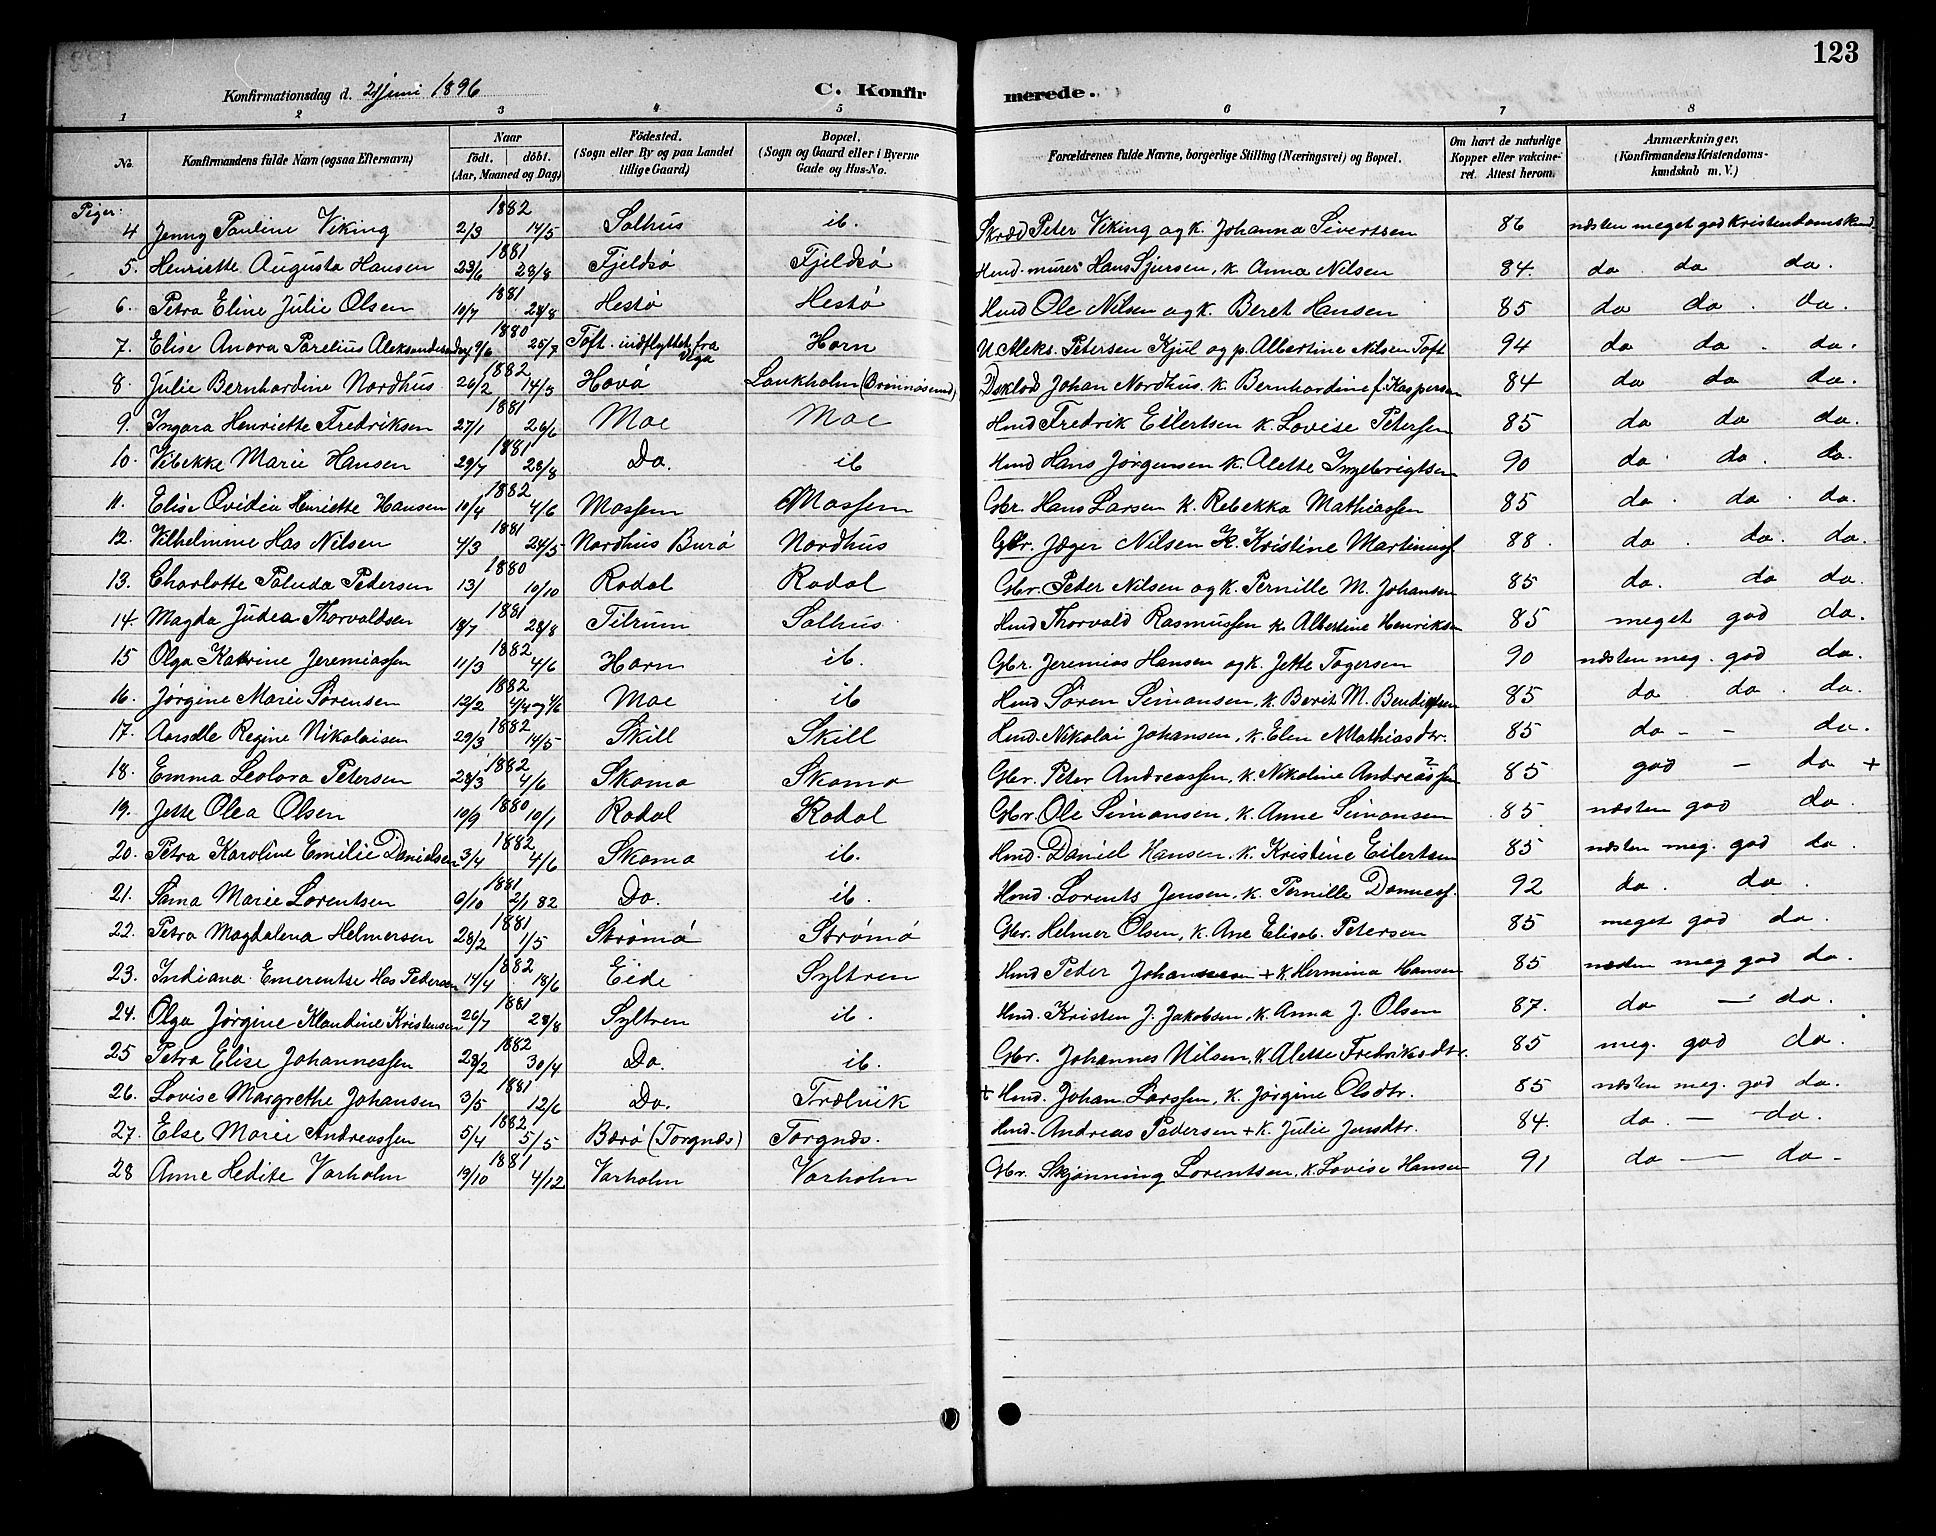 123
Konfirmationsdag d. 21 juni 1896 C. Konfirmerede.
1 2 3 4 5 6 7 8
No. Konfirmandens fulde Navn (ogsaa Efternavn) Naar födt. döbt. (Aar, Maaned og Dag) Födested. (Sogn eller By og paa Landet tillige Gaard) Bopæl. (Sogn og Gaard eller i Byerne Gade og Hus-No. Forældrenes fulde Navne, borgerlige Stilling (Næringsvei) og Bopæl. Om havt de naturlige Kopper eller vakcineret. Attest herom. Anmærkninger. (Konfirmandens Kristendomskundskab m. V.)
Piger:
4 Jenny Pauline Viking 1882 2/3 14/5 Salhus ib. Skræd Peter Viking og k. Johanna Sivertsen 86 næsten meget god Kristendomskund
5. Henriette Augusta Hansen 1881 23/6 28/8 Fjeldsø Fjeldsø Hmd. murer Hans Sjursen, k. Anna Nilsen 84. do do do.
6. Petra Eline Julie Olsen 1881 10/7 28/8 Hestø Hestø Hmd Ole Nilsen og k. Beret Hansen 85 do do. do.
7. Elise Anora Parelius Aleksandersen 1880 9/6 25/7 Toft. indflyttet fra Vega Horn U. Aleks. Petersen Kjul og p. Albertine Nilsen Toft 94 do do - do.
8. Julie Bernhardine Nordhus 1882 26/2 14/3 Havø Lankholm (Brønnøsund) Johan Nordhus. k. Bernhardine f. Kaspersen 84 do do do.
9. Ingara Henriette Fredriksen 1881 27/1 26/6 Moe Moe Hmd Fredrik Eilertsen k. Lovise Petersen 85 do do do.
10. Vibekke Marie Hansen 1881 29/7 28/8 Do. ib Hmd Hans Jørgensen k. Alette Ingebrigtsen 90 do do. do.
11. Elise Ovidia Henriette Hansen 1882 10/4 4/6 Mossem Mossem Gbr. Hans Larsen k. Rebekka Mathiassen 85 do. do. do.
12. Vilhelmine Has Nilsen 1881 4/3 24/5 Nordhus Burø Nordhus Gbr. Jæger Nilsen K. Kristine Martinusf. 88. do. do. do.
13. Charlotte Paluda Pedersen 1880 13/ 10/10 Rodal Rodal Gbr. Peter Nilsen og k. Pernille M. Johansen 85 do. do do.
14. Magda Judea Thorvaldsen 1881 18/7 28/8 Tilrum Salhus Hmd Thorvald Rasmussen k. Albertine Henriksen 85 meget god do.
15 Olga Katrine Jeremiassen 1882 11/3 4/6 Horn ib. Gbr. Jeremias Hansen og k. Jette Togersen 90 næsten meg. god do.
16. Jörgine Marie Sørensen 1882 12/2 4/4 og 4/6 Moe ib Hmd Søren Simonsen, k. Berit M. Bendiksen 85 do. do. do.
17. Aarselle Regine Nikolaisen 1882 29/3 14/5 Skill Skill Hmd. Nikolai Johansen, k. Elen Mathiasdtr. 85 do - - do.
18. Emma Leolora Petersen 1882 28/3 4/6 Skomo Skomo Gbr. Peter Andreassen, k. Nikoline Andreassen 85 god - do +
19. Jette Olea Olsen 1880 10/9 10/1 Rodal Rodal Gbr. Ole Simonsen, k. Anne Simonsen 85. næsten god do.
20. Petra Karoline Emilie Danielsen 1882 3/4 4/6 Skomo ib. Hmd. Daniel Hansen, k. Kristine Eilertsen 85 næsten meg. god do.
21. Sama Marie Lorentsen 1881 9/10 2/1 82 Do. ib. Hmd. Lorents Jensen, k. Pernille Donnesf. 92 do. do.
22. Petra Magdalena Helmersen 1881 28/2 1/5 Strømø Strømø Gbr. Helmer Olsen, k. Ane Elisab. Petersen 85 meget god do.
23. Indiana Emerentse Has Pedersen 1882 14/4 18/6 Eide Syltren Hmd Peder Johannesen + k. Hermina Hansen 85 næsten meg god do.
24. Olga Jörgine Klaudine Kristensen 1881 26/7 28/8 Syltren ib. Hmd. Kristen J. Jakobsen, k. Anna J. Olsen 87. do - do.
25 Petra Elise Johannessen 1882 28/2 30/4 Do. ib. Gbr. Johannes Nilsen, k. Alette Fredriksdtr. 85 meg. god do.
26. Lovise Margrethe Johansen 1881 3/5 12/6 Do. Trælvik + Hmd. Johan Larssen, k. Jørgine Olsdtr. 85 næsten meg. god do.
27. Else Marie Andreassen 1882 5/4 5/5 Bærø (Torgnæs) Torgnæs. Hmd. Andreas Pedersen + k. Julie Jensdtr. 84. do. - do.
28 Anne Hedite Varholm 1881 19/10 4/12 Varholm Varholm Gbr. Skjønning Lorentsen, k. Lovise Hansen 91 do - do -